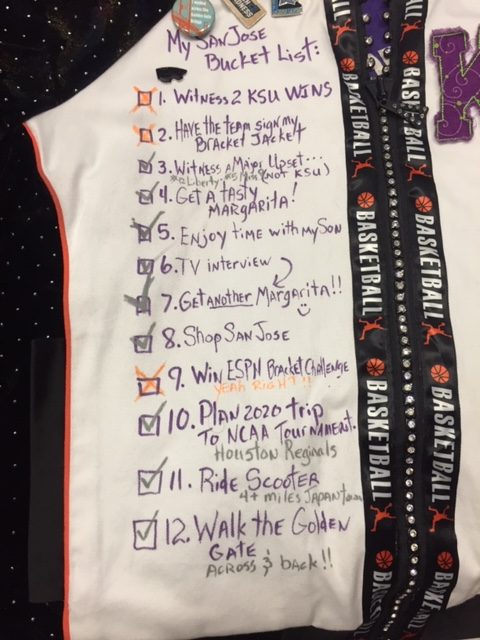 My San Jose
Bucket List:
1. Witness 2 KSU Wins
2. Have the team sign my
Bracket Jacket
3. Witness a Major Upset...
(not KSU)
*12 Liberty
4. Get a tasty
Margarita!
5. Enjoy time with my Son
6. TV interview
7. Get another Margarita!!
8. Shop San Jose
9. Win ESPN Bracket Challenge
Yeah Right!!
10. Plan 2020 trip
to NCAA Tournament.
Houston Reginals
11. Ride Scooter
4+ miles Japantown
12. Walk the Golden
Gate
Across & back!!
BASKETBALL
BASKETBALL
BASKETBALL
BASKETBALL
BASKETBALL
BASKETBALL
BASKETBALL
BASKETBALL
K